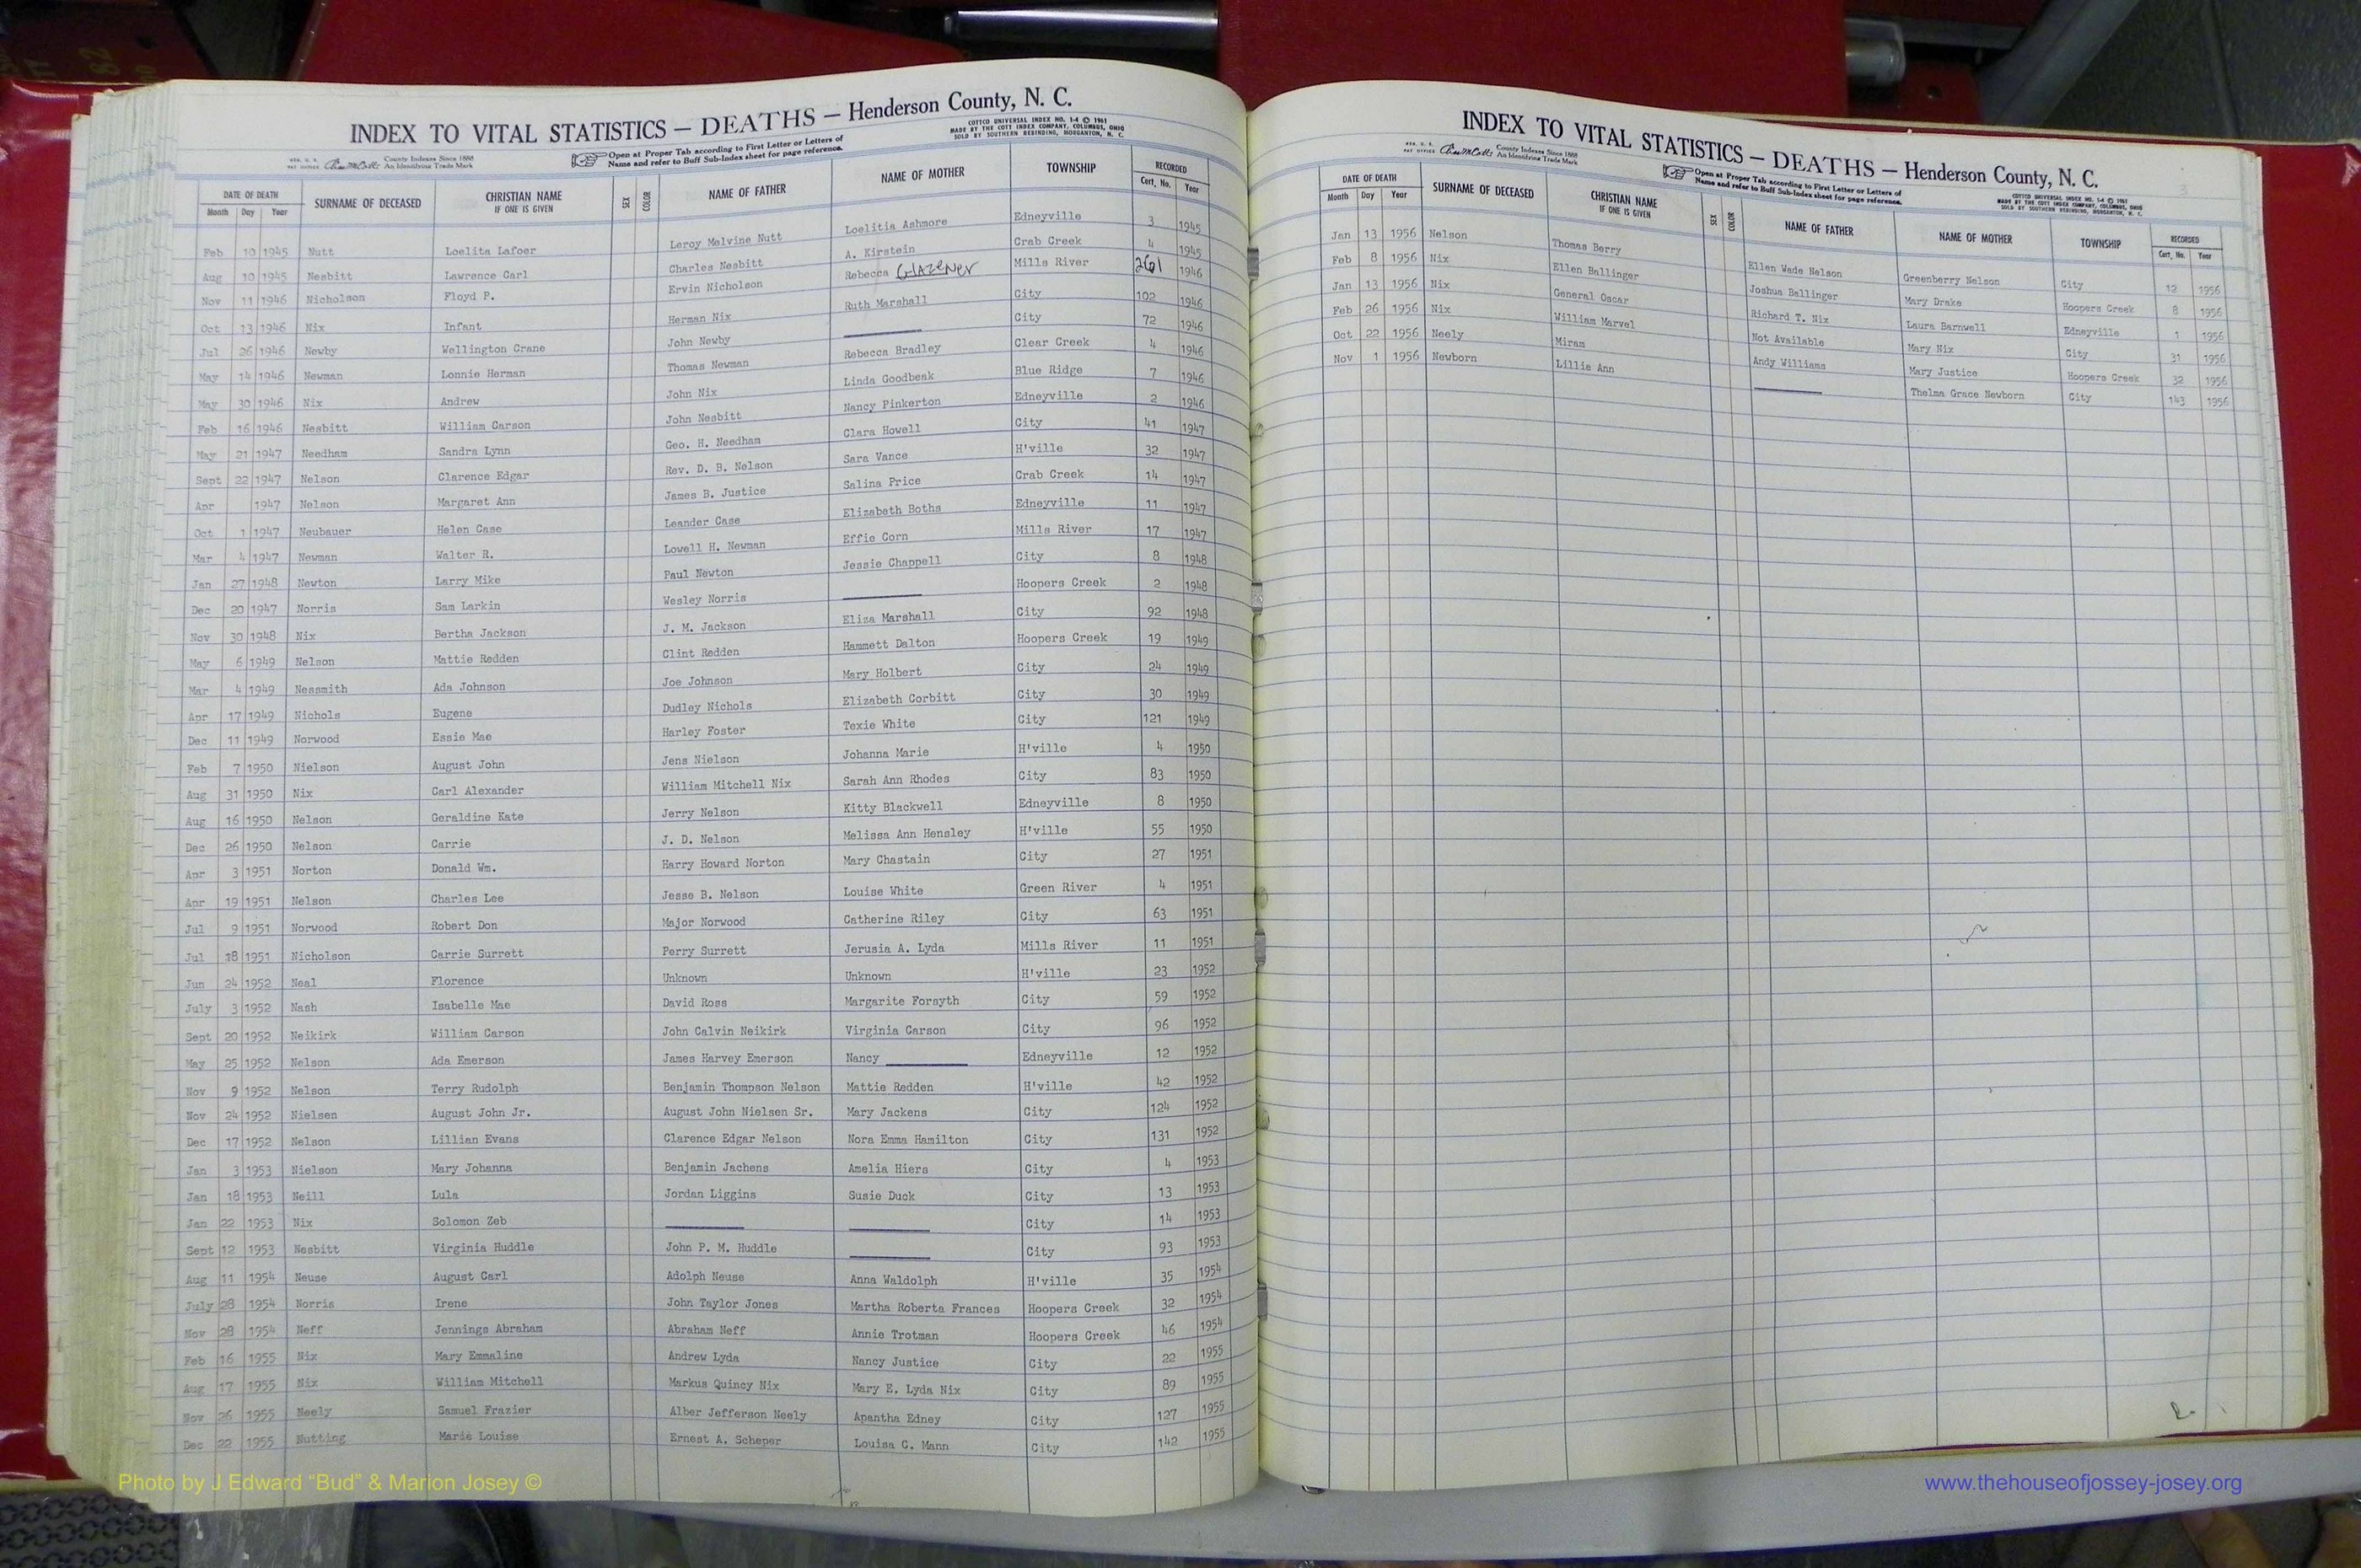 INDEX TO VITAL STATISTICS — DEATHS — Henderson County, N. C.
COTTCO UNIVERSAL INDEX NO. 1-4 © 1961
MADE BY THE COTT INDEX COMPANY, COLUMBUS, OHIO
SOLD BY SOUTHERN REBINDING, MORGANTON, N. C.
County Indexes Since 1888
An Identifying Trade Mark
Open at Proper Tab according to First Letter or Letters of
Name and refer to Buff Sub-Index sheet for page reference.
DATE OF DEATH SURNAME OF DECEASED CHRISTIAN NAME IF ONE IS GIVEN SEX COLOR NAME OF FATHER NAME OF MOTHER TOWNSHIP RECORDED
Month Day Year Cert. No. Year
Feb 10 1945 Nutt Loelita Lafoer Leroy Melvine Nutt Loelitia Ashmore Edneyville 3 1945
Aug 10 1945 Nesbitt Lawrence Carl Charles Nesbitt A. Kirstein Crab Creek 4 1945
Nov 11 1946 Nicholson Floyd P. Ervin Nicholson Rebecca Glazener Mills River 261 1946
Oct 13 1946 Nix Infant Herman Nix Ruth Marshall City 102 1946
Jul 26 1946 Newby Wellington Crane John Newby City 72 1946
May 14 1946 Newman Lonnie Herman Thomas Newman Rebecca Bradley Clear Creek 4 1946
May 30 1946 Nix Andrew John Nix Linda Goodbenk Blue Ridge 7 1946
Feb 16 1946 Nesbitt William Carson John Nesbitt Nancy Pinkerton Edneyville 2 1946
May 21 1947 Needham Sandra Lynn Geo. H. Needham Clara Howell City 41 1947
Sept 22 1947 Nelson Clarence Edgar Rev. D. B. Nelson Sara Vance H'ville 32 1947
Apr 1947 Nelson Margaret Ann James B. Justice Salina Price Crab Creek 14 1947
Oct 1 1947 Neubauer Helen Case Leander Case Elizabeth Boths Edneyville 11 1947
Mar 4 1947 Newman Walter R. Lowell H. Newman Effie Corn Mills River 17 1947
Jan 27 1948 Newton Larry Mike Paul Newton Jessie Chappell City 8 1948
Dec 20 1947 Norris Sam Larkin Wesley Norris Hoopers Creek 2 1948
Nov 30 1948 Nix Bertha Jackson J. M. Jackson Eliza Marshall City 92 1948
May 6 1949 Nelson Mattie Redden Clint Redden Hammett Dalton Hoopers Creek 19 1949
Mar 4 1949 Nessmith Ada Johnson Joe Johnson Mary Holbert City 24 1949
Apr 17 1949 Nichols Eugene Dudley Nichols Elizabeth Corbitt City 30 1949
Dec 11 1949 Norwood Essie Mae Harley Foster Texie White City 121 1949
Feb 7 1950 Nielson August John Jens Nielson Johanna Marie H'ville 4 1950
Aug 31 1950 Nix Carl Alexander William Mitchell Nix Sarah Ann Rhodes City 83 1950
Aug 16 1950 Nelson Geraldine Kate Jerry Nelson Kitty Blackwell Edneyville 8 1950
Dec 26 1950 Nelson Carrie J. D. Nelson Melissa Ann Hensley H'ville 55 1950
Apr 3 1951 Norton Donald Wm. Harry Howard Norton Mary Chastain City 27 1951
Apr 19 1951 Nelson Charles Lee Jesse B. Nelson Louise White Green River 4 1951
Jul 9 1951 Norwood Robert Don Major Norwood Catherine Riley City 63 1951
Jul 18 1951 Nicholson Carrie Surrett Perry Surrett Jerusia A. Lyda Mills River 11 1951
Jun 24 1952 Neal Florence Unknown Unknown H'ville 23 1952
July 3 1952 Nash Isabelle Mae David Ross Margarite Forsyth City 59 1952
Sept 20 1952 Neikirk William Carson John Calvin Neikirk Virginia Carson City 96 1952
May 25 1952 Nelson Ada Emerson James Harvey Emerson Nancy Edneyville 12 1952
Nov 9 1952 Nelson Terry Rudolph Benjamin Thompson Nelson Mattie Redden H'ville 42 1952
Nov 24 1952 Nielsen August John Jr. August John Nielsen Sr. Mary Jackens City 124 1952
Dec 17 1952 Nelson Lillian Evans Clarence Edgar Nelson Nora Emma Hamilton City 131 1952
Jan 3 1953 Nielson Mary Johanna Benjamin Jachens Amelia Hiers City 4 1953
Jan 18 1953 Neill Lula Jordan Liggins Susie Duck City 13 1953
Jan 22 1953 Nix Solomon Zeb City 14 1953
Sept 12 1953 Nesbitt Virginia Huddle John P. M. Huddle City 93 1953
Aug 11 1954 Neuse August Carl Adolph Neuse Anna Waldolph H'ville 35 1954
July 28 1954 Norris Irene John Taylor Jones Martha Roberta Frances Hoopers Creek 32 1954
Nov 28 1954 Neff Jennings Abraham Abraham Neff Annie Trotman Hoopers Creek 46 1954
Feb 16 1955 Nix Mary Emmaline Andrew Lyda Nancy Justice City 22 1955
Aug 17 1955 Nix William Mitchell Markus Quincy Nix Mary E. Lyda Nix City 89 1955
Nov 26 1955 Neely Samuel Frazier Alber Jefferson Neely Apantha Edney City 127 1955
Dec 22 1955 Nutting Marie Louise Ernest A. Scheper Louisa C. Mann City 142 1955
INDEX TO VITAL STATISTICS — DEATHS — Henderson County, N. C.
County Indexes Since 1888
An Identifying Trade Mark
Open at Proper Tab according to First Letter or Letters of
Name and refer to Buff Sub-Index sheet for page reference.
COTTCO UNIVERSAL INDEX NO. 1-4 © 1961
MADE BY THE COTT INDEX COMPANY, COLUMBUS, OHIO
SOLD BY SOUTHERN REBINDING, MORGANTON, N. C.
DATE OF DEATH SURNAME OF DECEASED CHRISTIAN NAME IF ONE IS GIVEN SEX COLOR NAME OF FATHER NAME OF MOTHER TOWNSHIP RECORDED
Month Day Year Cert. No. Year
Jan 13 1956 Nelson Thomas Berry Ellen Wade Nelson Greenberry Nelson City 12 1956
Feb 8 1956 Nix Ellen Ballinger Joshua Ballinger Mary Drake Hoopers Creek 8 1956
Jan 13 1956 Nix General Oscar Richard T. Nix Laura Barnwell Edneyville 1 1956
Feb 26 1956 Nix William Marvel Not Available Mary Nix City 31 1956
Oct 22 1956 Neely Miram Andy Williams Mary Justice Hoopers Creek 32 1956
Nov 1 1956 Newborn Lillie Ann Thelma Grace Newborn City 143 1956
Photo by J Edward "Bud" & Marion Josey ©
www.thehouseofjossey-josey.org